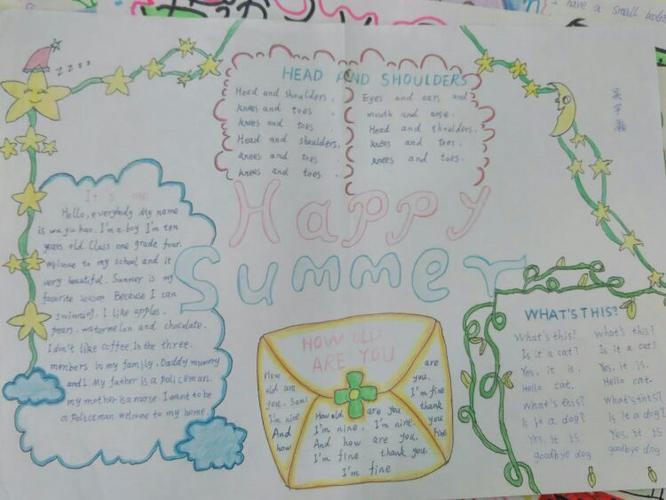 I have a small
zzzz
HEAD AND SHOULDERS
Head and shoulders,
knees and toes
knees and toes
Head and shoulders,
knees and toes.
knees and toes
Eyes and ears and
mouth and nose.
Head and shoulders,
knees and toes.
knees and toes.
Happy
Summer
It's me
Hello, everybody My name
is wu yu hao. I'm a boy I'm ten
years old. Class one grade four.
welcome to my school and it
very beautiful. Summer is my
favorite season Because I can
swimming. I like apples.
pears. watermelon and chocolate.
I don't like coffee. In the three.
members in my family. Daddy mummy
and I. My father is a Policeman.
my mother is a nurse I want to be
a Policeman welcome to my home.
HOW OLD
ARE YOU
How
old are
you. Sam
I'm nine
And
how
How old are you
I'm nine, I'm nine.
And how are you,
I'm fine thank you
I'm fine
are
you.
I'm fine
thank
you
fine
WHAT'S THIS?
What's this?
Is it a cat?
Yes, it is.
Hello cat.
What's this?
Is it a dog?
Yes, it is
goodbye dog
What's this?
Is it a cat?
Yes, it is.
Hello cat
What's this?
Is it a dog?
Yes, it is
goodbye dog